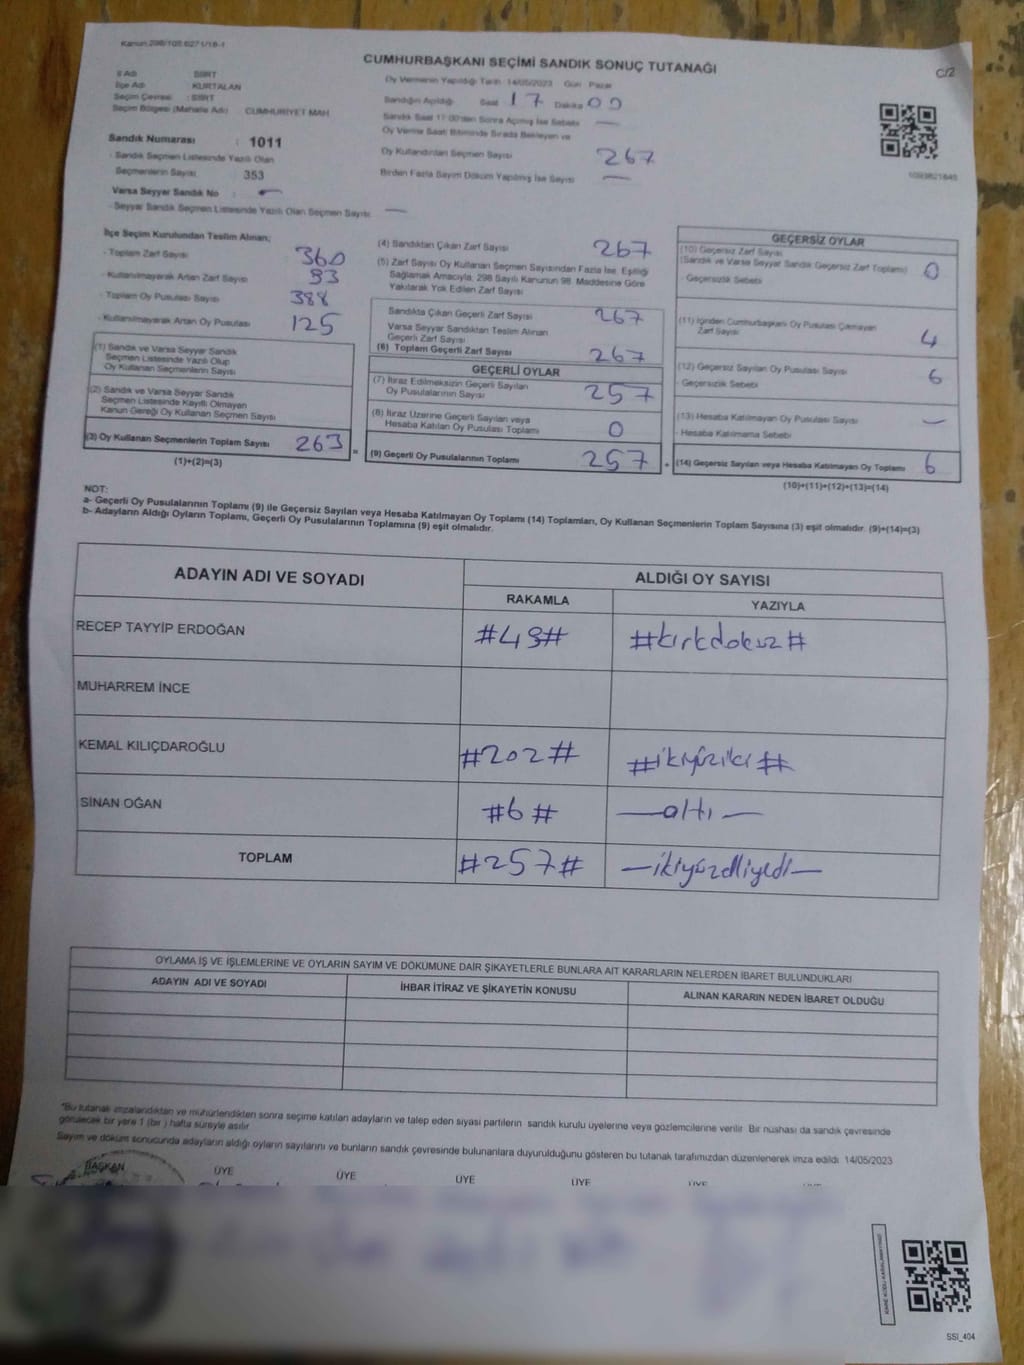 Kanun:298/105 6271/18-1
CUMHURBAŞKANI SEÇİMİ SANDIK SONUÇ TUTANAĞI
C/2
İl Adı : SİİRT
İlçe Adı : KURTALAN
Seçim Çevresi : SİİRT
Seçim Bölgesi (Mahalle Adı) CUMHURİYET MAH
Sandık Numarası : 1011
- Sandık Seçmen Listesinde Yazılı Olan
Seçmenlerin Sayısı 353
Varsa Seyyar Sandık No : -
- Seyyar Sandık Seçmen Listesinde Yazılı Olan Seçmen Sayısı: -
Oy Vermenin Yapıldığı Tarih 14/05/2023 Gün Pazar
Sandığın Açıldığı Saat 17 Dakika 00
Sandık Saat 17:00'den Sonra Açılmış İse Sebebi -
Oy Verme Saati Bitiminde Sırada Bekleyen ve
Oy Kullandırılan Seçmen Sayısı 267
Birden Fazla Sayım Döküm Yapılmış İse Sayısı -
İlçe Seçim Kurulundan Teslim Alınan;
- Toplam Zarf Sayısı 360
- Kullanılmayarak Artan Zarf Sayısı 93
- Toplam Oy Pusulası Sayısı 388
- Kullanılmayarak Artan Oy Pusulası 125
(1) Sandık ve Varsa Seyyar Sandık
Seçmen Listesinde Yazılı Olup
Oy Kullanan Seçmenlerin Sayısı
(2) Sandık ve Varsa Seyyar Sandık
Seçmen Listesinde Kayıtlı Olmayan
Kanun Gereği Oy Kullanan Seçmen Sayısı
(3) Oy Kullanan Seçmenlerin Toplam Sayısı 263
(1)+(2)=(3)
=
(4) Sandıktan Çıkan Zarf Sayısı 267
(5) Zarf Sayısı Oy Kullanan Seçmen Sayısından Fazla İse, Eşitliği
Sağlamak Amacıyla; 298 Sayılı Kanunun 98. Maddesine Göre
Yakılarak Yok Edilen Zarf Sayısı
Sandıkta Çıkan Geçerli Zarf Sayısı 267
Varsa Seyyar Sandıktan Teslim Alınan
Geçerli Zarf Sayısı
(6) Toplam Geçerli Zarf Sayısı 267
GEÇERLİ OYLAR
(7) İtiraz Edilmeksizin Geçerli Sayılan
Oy Pusulalarının Sayısı 257
(8) İtiraz Üzerine Geçerli Sayılan veya
Hesaba Katılan Oy Pusulası Toplamı 0
(9) Geçerli Oy Pusulalarının Toplamı 257
+
GEÇERSİZ OYLAR
(10) Geçersiz Zarf Sayısı
(Sandık ve Varsa Seyyar Sandık Geçersiz Zarf Toplamı) 0
- Geçersizlik Sebebi
(11) İçinden Cumhurbaşkanı Oy Pusulası Çıkmayan
Zarf Sayısı 4
(12) Geçersiz Sayılan Oy Pusulası Sayısı 6
- Geçersizlik Sebebi
(13) Hesaba Katılmayan Oy Pusulası Sayısı -
- Hesaba Katılmama Sebebi
(14) Geçersiz Sayılan veya Hesaba Katılmayan Oy Toplamı 6
(10)+(11)+(12)+(13)=(14)
NOT:
a- Geçerli Oy Pusulalarının Toplamı (9) ile Geçersiz Sayılan veya Hesaba Katılmayan Oy Toplamı (14) Toplamları, Oy Kullanan Seçmenlerin Toplam Sayısına (3) eşit olmalıdır. (9)+(14)=(3)
b- Adayların Aldığı Oyların Toplamı, Geçerli Oy Pusulalarının Toplamına (9) eşit olmalıdır.
ADAYIN ADI VE SOYADI
ALDIĞI OY SAYISI
RAKAMLA YAZIYLA
RECEP TAYYİP ERDOĞAN #49# #kırkdokuz#
MUHARREM İNCE
KEMAL KILIÇDAROĞLU #202# #ikiyüziki#
SİNAN OĞAN #6# -altı-
TOPLAM #257# -ikiyüzelliyedi-
OYLAMA İŞ VE İŞLEMLERİNE VE OYLARIN SAYIM VE DÖKÜMÜNE DAİR ŞİKAYETLERLE BUNLARA AİT KARARLARIN NELERDEN İBARET BULUNDUKLARI
ADAYIN ADI VE SOYADI İHBAR İTİRAZ VE ŞİKAYETİN KONUSU ALINAN KARARIN NEDEN İBARET OLDUĞU
*Bu tutanak imzalandıktan ve mühürlendikten sonra seçime katılan adayların ve talep eden siyasi partilerin sandık kurulu üyelerine veya gözlemcilerine verilir. Bir nüshası da sandık çevresinde
görülecek bir yere 1 (bir ) hafta süreyle asılır
Sayım ve döküm sonucunda adayların aldığı oyların sayılarını ve bunların sandık çevresinde bulunanlara duyurulduğunu gösteren bu tutanak tarafımızdan düzenlenerek imza edildi. 14/05/2023
BAŞKAN ÜYE ÜYE ÜYE ÜYE ÜYE
SSI_404